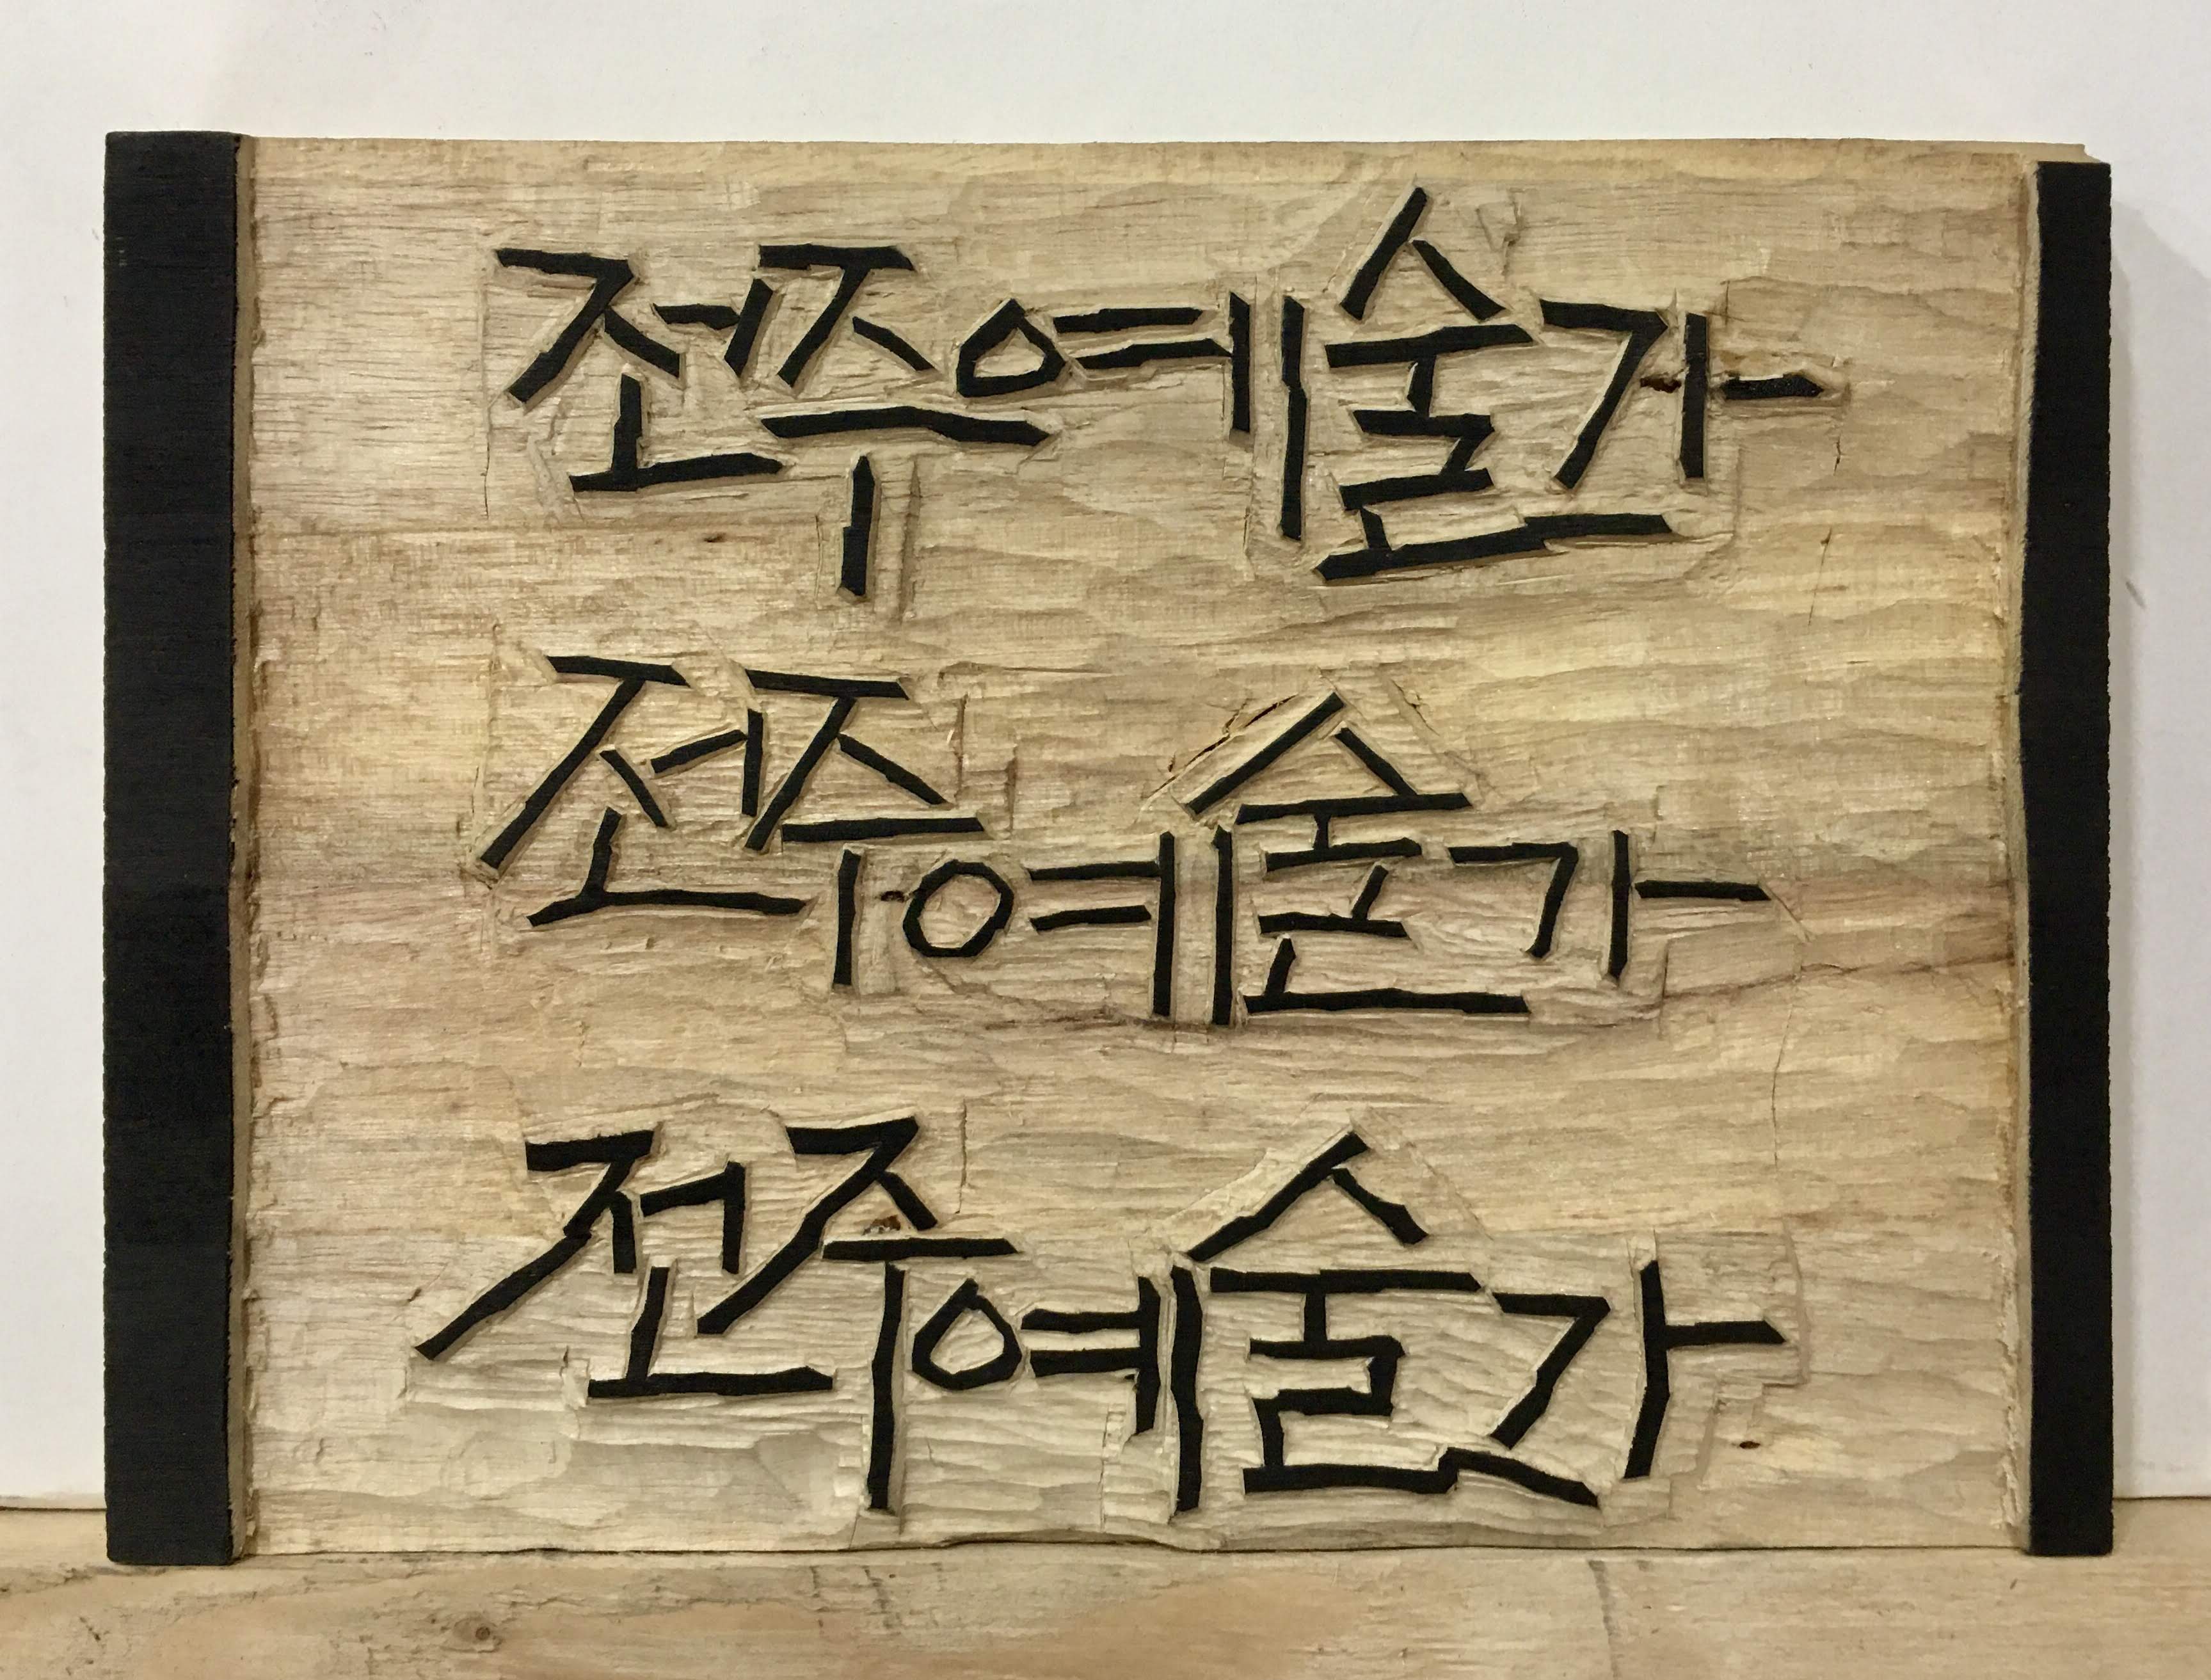 전주예술가
전주예술가
전주예술가